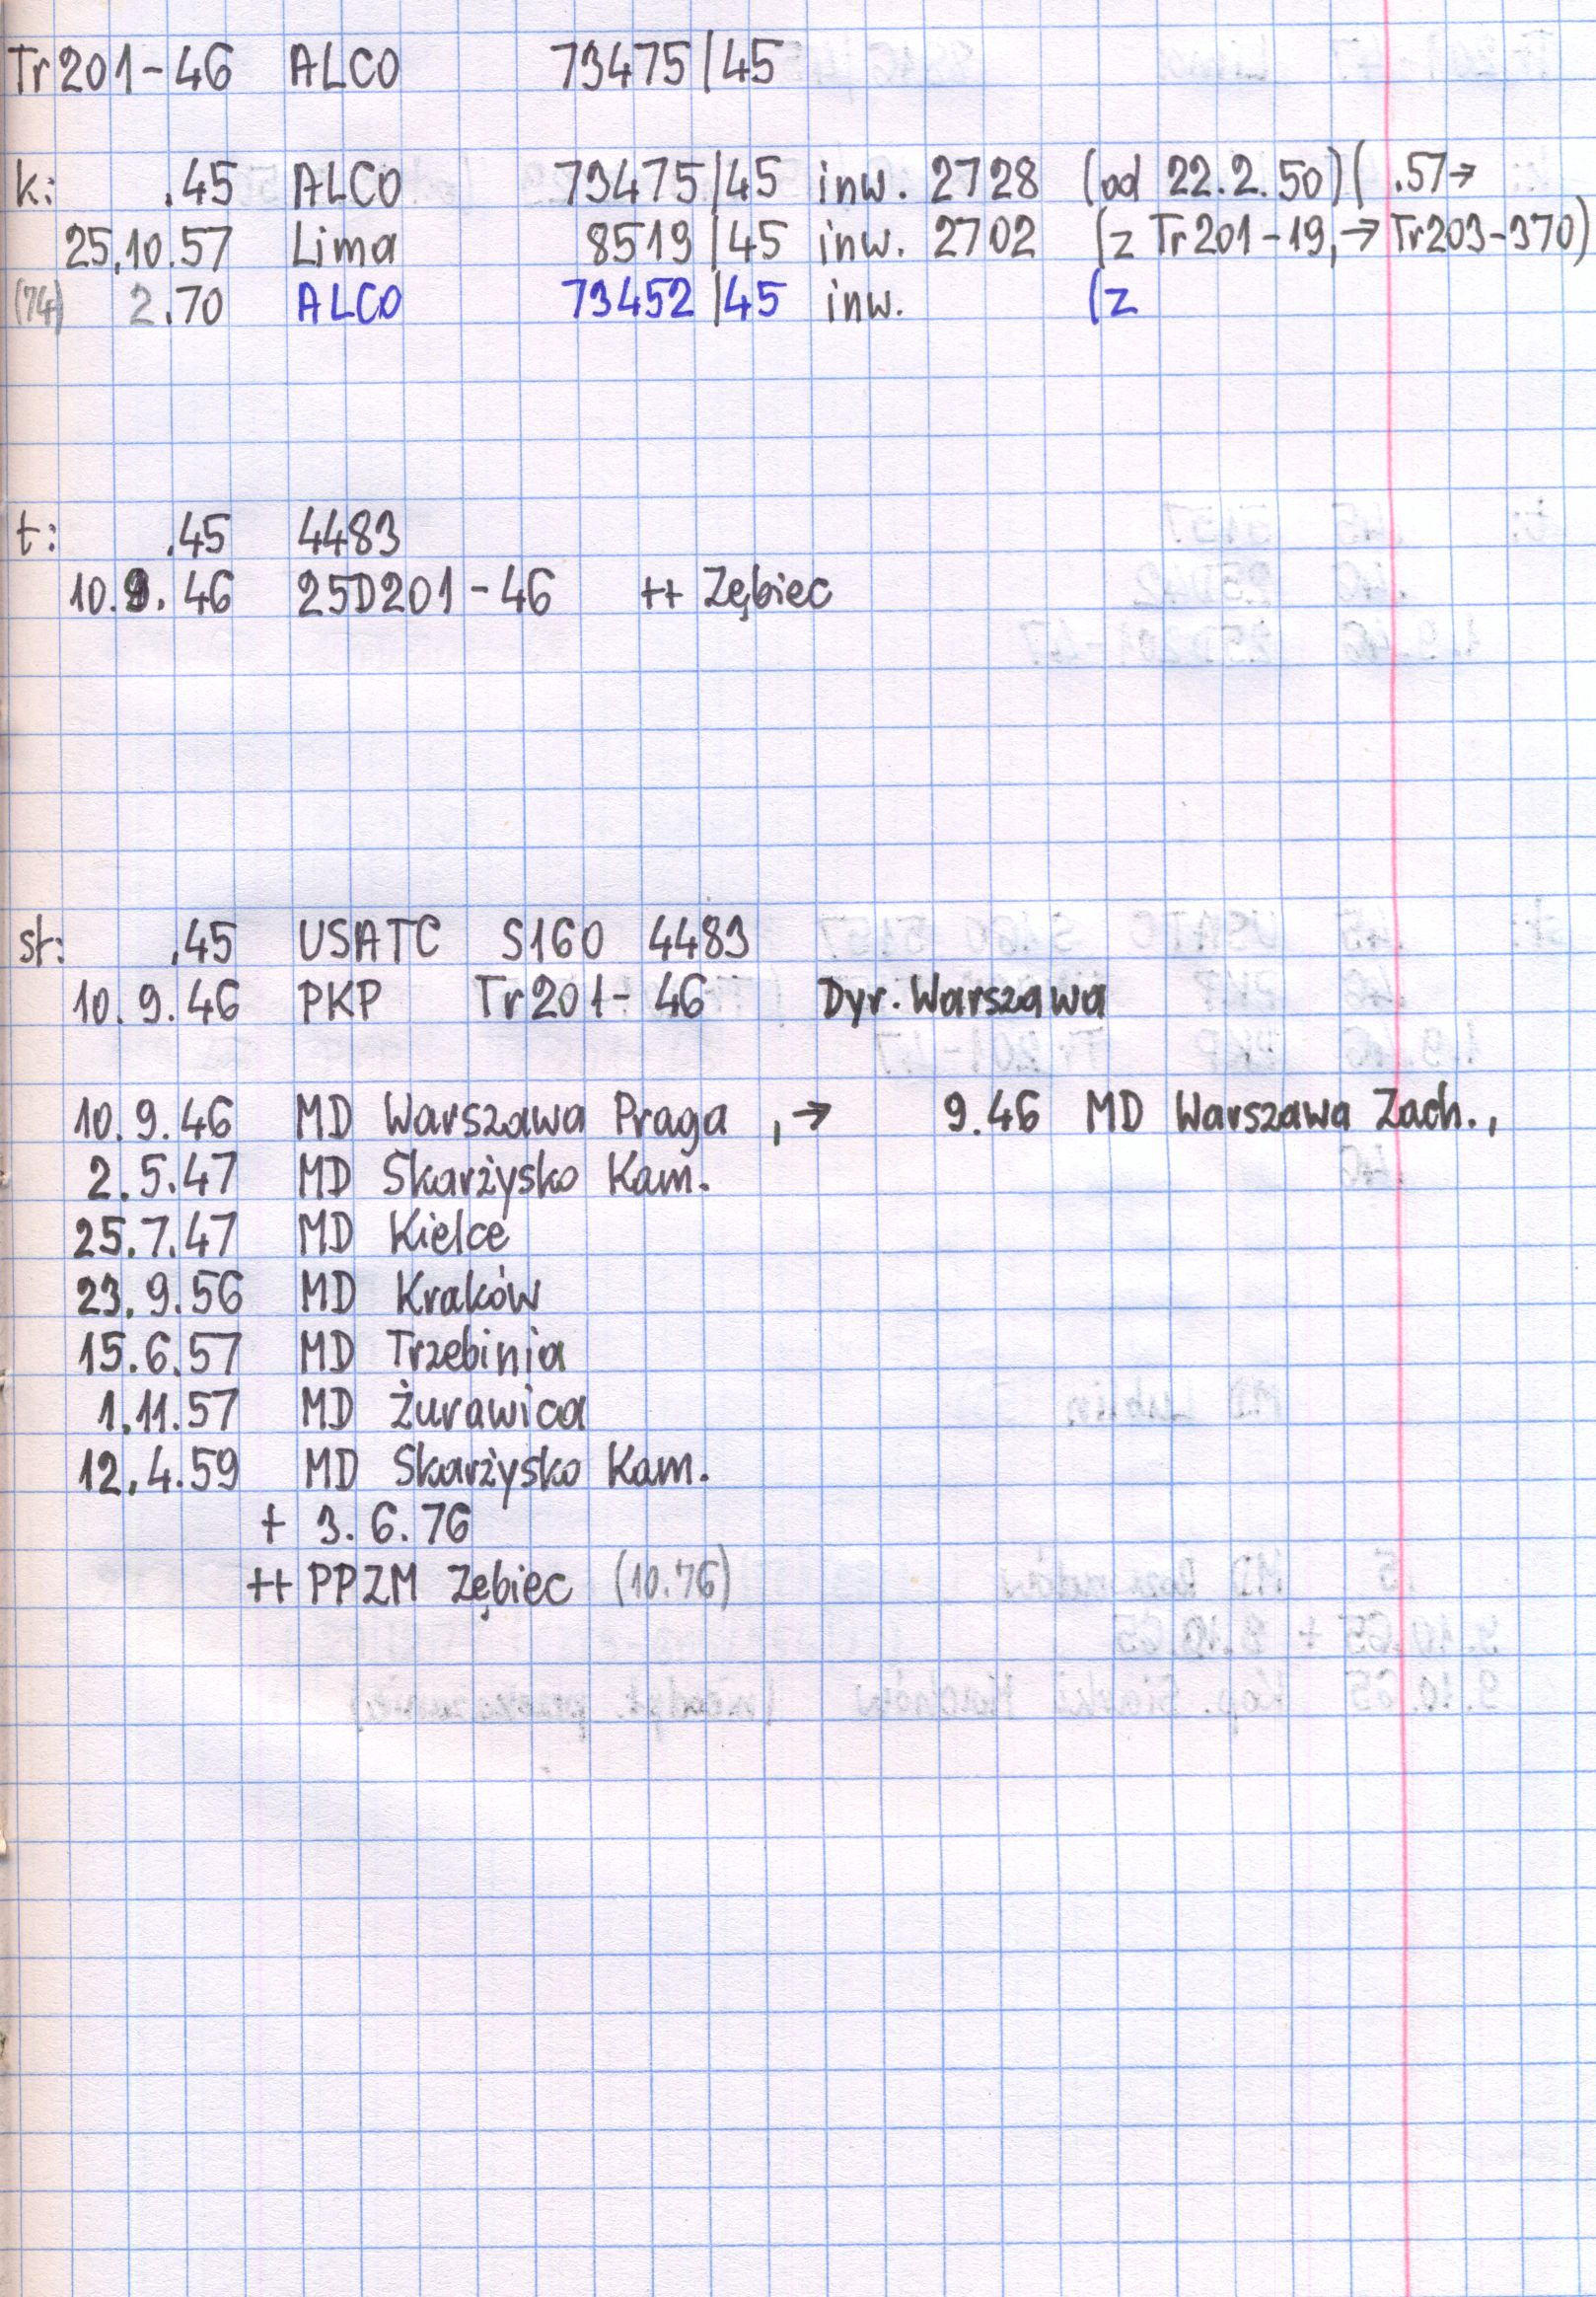 Tr201-46 ALCO 73475/45
k: .45 ALCO 73475/45 inw. 2728 (od 22.2.50)( .57→
25.10.57 Lima 8519/45 inw. 2702 (z Tr201-19,→Tr203-370)
(74) 2.70 ALCO 73452/45 inw. (z
t: .45 4483
10.9.46 25D201-46 ++ Zębiec
st: .45 USATC S160 4483
10.9.46 PKP Tr201-46 Dyr. Warszawa
10.9.46 MD Warszawa Praga ,→ 9.46 MD Warszawa Zach.,
2.5.47 MD Skarżysko Kam.
25.7.47 MD Kielce
23.9.56 MD Kraków
15.6.57 MD Trzebinia
1.11.57 MD Żurawica
12.4.59 MD Skarżysko Kam.
+ 3.6.76
++ PPZM Zębiec (10.76)